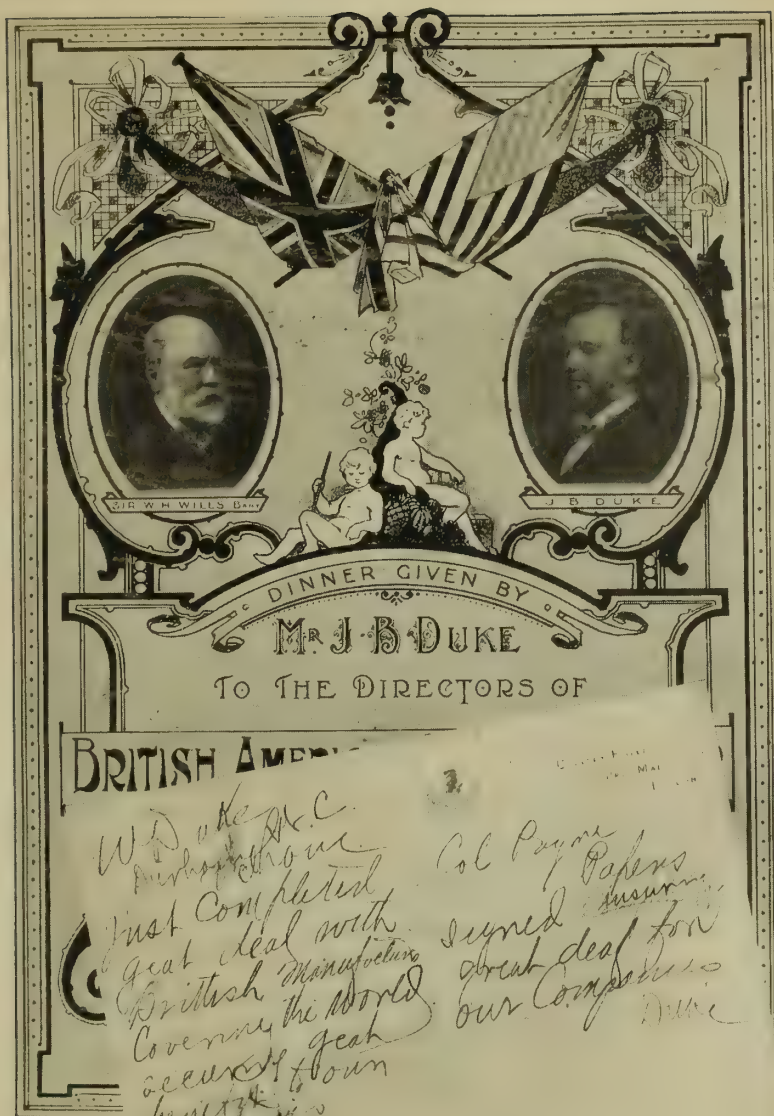 SIR W H WILLS BART
J B DUKE
DINNER GIVEN BY
MR J·B·DUKE
TO THE DIRECTORS OF
BRITISH AMERI
W Duke
N.C
have
just completed
great deal with
British Manufacturers
Covering the world
great
to our
Col Payne
Papers
signed
great deal for
our Companies
Duke